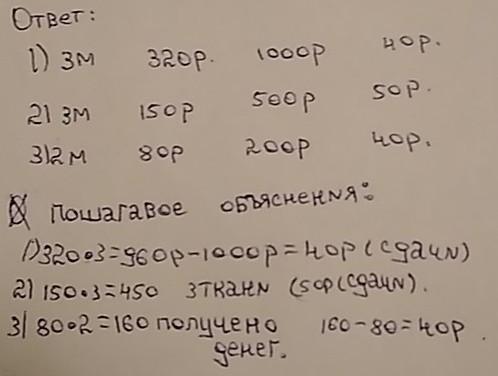 Ответ:
1) 3м 320р. 1000р 40р.
2) 3м 150р 500р 50р.
3) 2м 80р 200р 40р.
пошагавое объяснения:
1) 320•3=960р-1000р=40р (сдачи)
2) 150•3=450 3ткани (50р(сдачи).
3) 80•2=160 получено 160-80=40р.
денег.